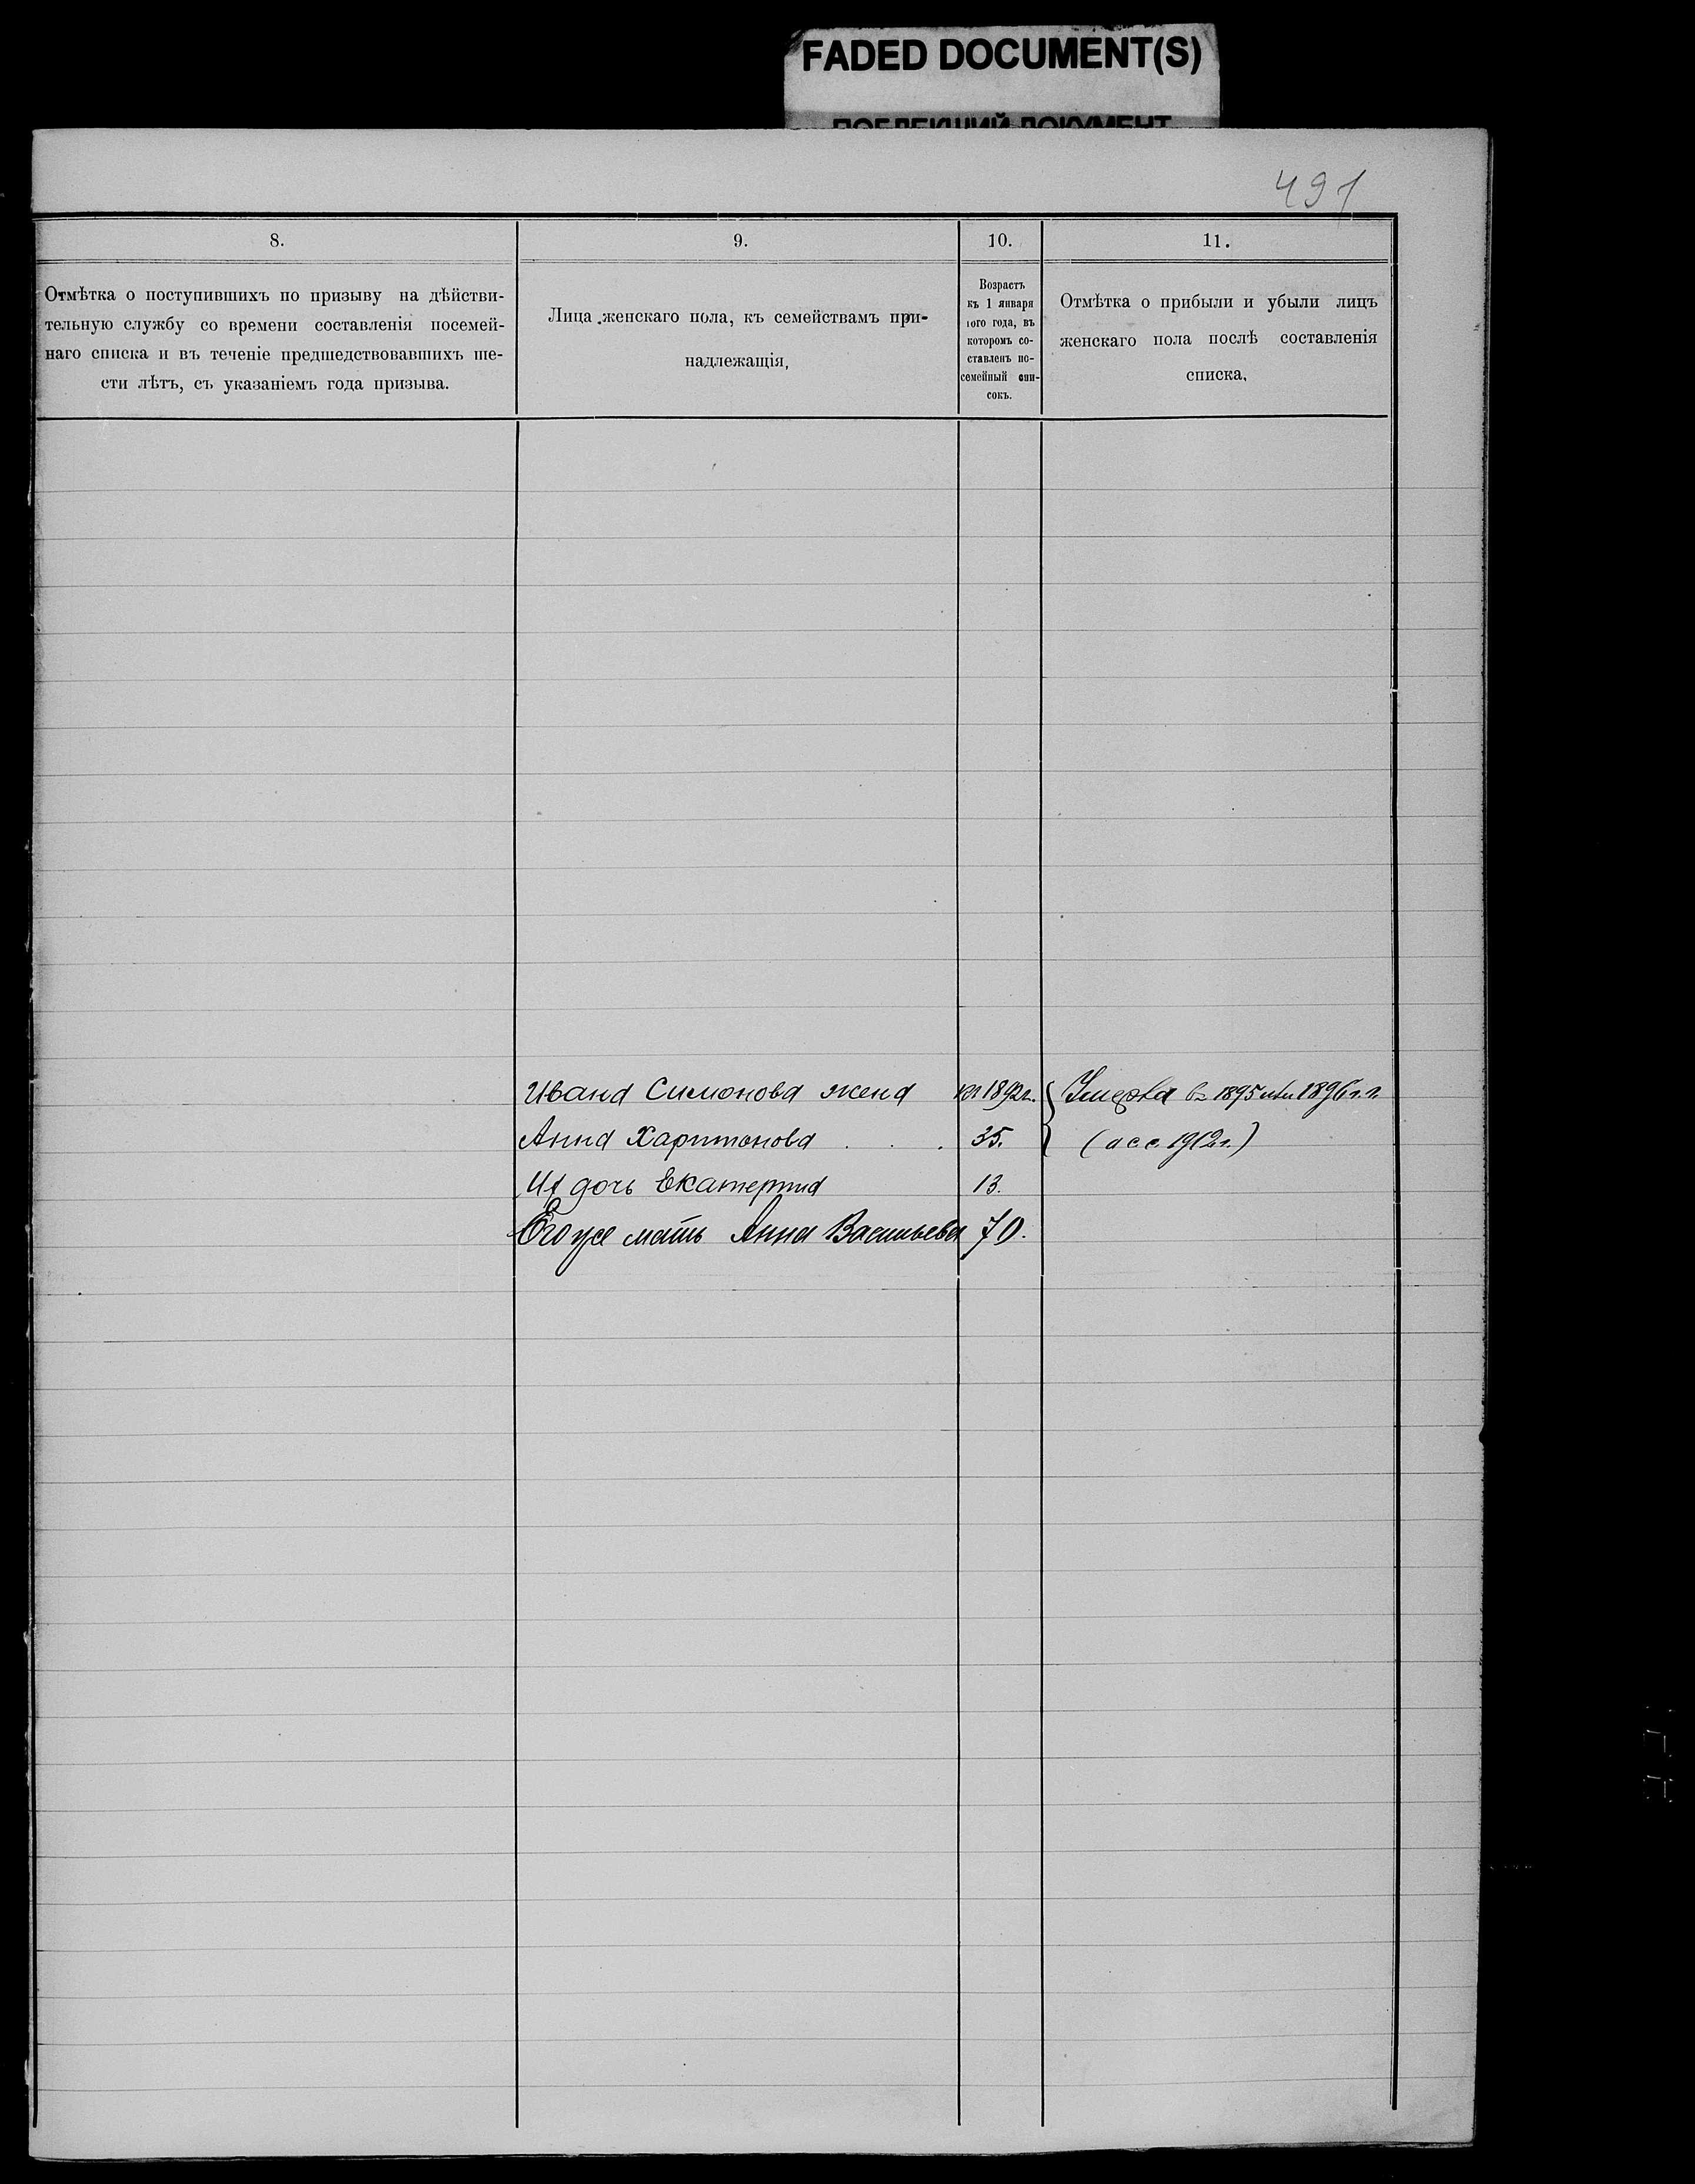 FADED DOCUMENT(S)
ПОБЛЕКШИЙ ДОКУМЕНТ
491
8.
9.
10.
11.
Отмѣтка о поступившихъ по призыву на дѣйстви-
тельную службу со времени составленія посемей-
наго списка и въ теченіе предшедствовавшихъ ше-
сти лѣтъ, съ указаніемъ года призыва.
Лица женскаго пола, къ семействамъ при-
надлежащія,
Возрастъ
къ 1 января
того года, въ
которомъ со-
ставленъ по-
семейный спи-
сокъ.
Отмѣтка о прибыли и убыли лицъ
женскаго пола послѣ составленія
списка,
Ивана Симонова жена 1892 г. Умерла въ 1895 или 1896 г.г.
Анна Харитонова . . . 35. (а с.с. 1912 г.)
Их дочь Екатерина 13.
Его же мать Анна Васильева 70.